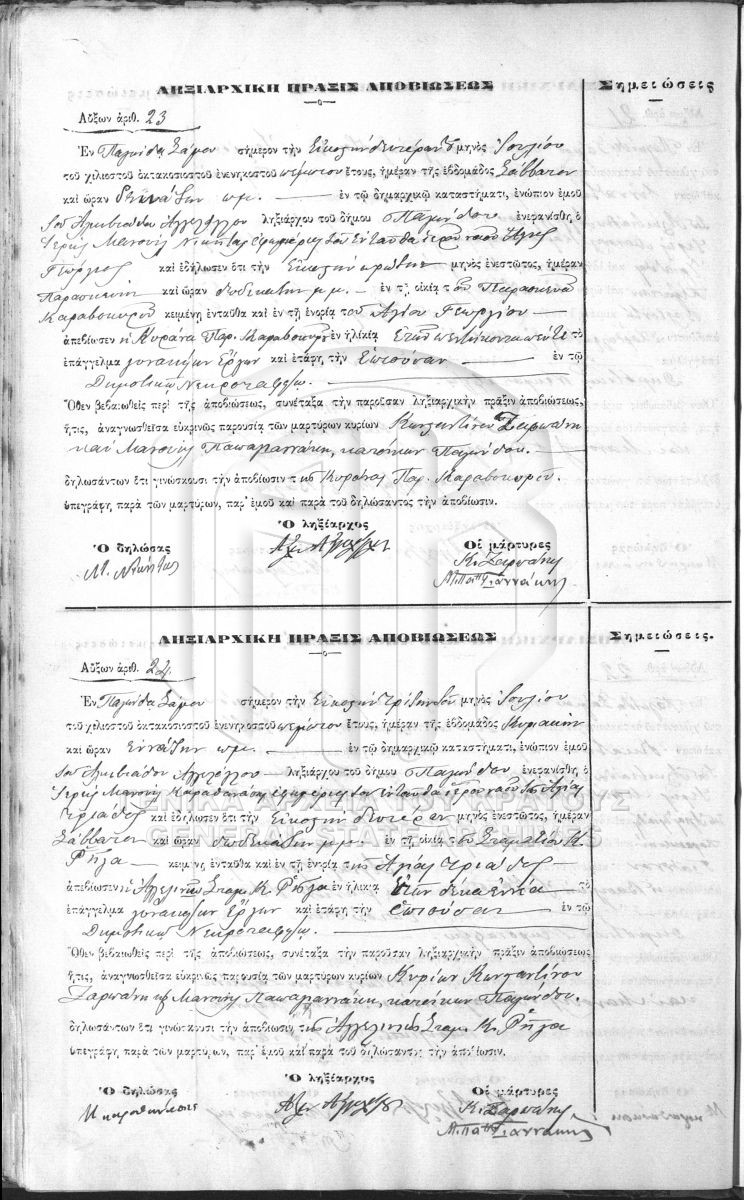 ΛΗΞΙΑΡΧΙΚΗ ΠΡΑΞΙΣ ΑΠΟΒΙΩΣΕΩΣ
Σημειώσεις
Αὔξων ἀριθ. 23
Ἐν Παγώνδα Σάμου σήμερον τὴν Εἰκοστὴν δευτέραν τοῦ μηνὸς Ἰουλίου
τοῦ χιλιοστοῦ ὀκτακοσιοστοῦ ἐνενηκοστοῦ πέμπτου ἔτους, ἡμέραν τῆς ἑβδομάδος Σάββατον
καὶ ὥραν δεκάτην πμ. — ἐν τῷ δημαρχικῷ καταστήματι, ἐνώπιον ἐμοῦ
τοῦ Ἀλκιβιάδου ληξιάρχου τοῦ δήμου Παγώνδου ἐνεφανίσθη ὁ
Ἱερεὺς Μανουὴλ Νικήτας ἐφημέριος τοῦ ἐνταῦθα ἱεροῦ ναοῦ Ἁγίου
Γεώργιος καὶ ἐδήλωσεν ὅτι τὴν Εἰκοστὴν πρώτην μηνὸς ἐνεστῶτος, ἡμέραν
Παρασκευὴν καὶ ὥραν δωδεκάτην μ.μ. — ἐν τῇ οἰκίᾳ τοῦ Παρασκευᾶ
Καραβοκυροῦ κειμένῃ ἐνταῦθα καὶ ἐν τῇ ἐνορίᾳ τοῦ Ἁγίου Γεωργίου —
ἀπεβίωσεν ἡ Κυράνα Παρ. Καραβοκυροῦ ἐν ἡλικίᾳ Ἐτῶν πεντήκοντα πέντε τὸ
ἐπάγγελμα γυναικείων Ἔργων καὶ ἐτάφη τὴν Ἐπιοῦσαν — ἐν τῷ
Δημοτικῷ Νεκροταφείῳ. —
Ὅθεν βεβαιωθεὶς περὶ τῆς ἀποβιώσεως, συνέταξα τὴν παροῦσαν ληξιαρχικὴν πρᾶξιν ἀποβιώσεως,
ἥτις, ἀναγνωσθεῖσα εὐκρινῶς παρουσίᾳ τῶν μαρτύρων κυρίων Κωνσταντίνου Ζαρπάνη
καὶ Μανουὴλ Παπαγιαννάκη, κατοίκων Παγώνδου. —
δηλωσάντων ὅτι γινώσκουσι τὴν ἀποβίωσιν τῆς Κυράνας Παρ. Καραβοκυροῦ
ὑπεγράφη παρὰ τῶν μαρτύρων, παρ' ἐμοῦ καὶ παρὰ τοῦ δηλώσαντος τὴν ἀποβίωσιν.
Ὁ ληξίαρχος
Ὁ δηλώσας
Οἱ μάρτυρες
Μ. Νικήτας
Κ. Ζαρπάνης
Μ. Παπαγιαννάκης
ΛΗΞΙΑΡΧΙΚΗ ΠΡΑΞΙΣ ΑΠΟΒΙΩΣΕΩΣ
Σημειώσεις.
Αὔξων ἀριθ. 24.
Ἐν Παγώνδα Σάμου σήμερον τὴν Εἰκοστὴν τρίτην τοῦ μηνὸς Ἰουλίου
τοῦ χιλιοστοῦ ὀκτακοσιοστοῦ ἐνενηκοστοῦ πέμπτου ἔτους, ἡμέραν τῆς ἑβδομάδος Κυριακὴν
καὶ ὥραν ἐννάτην πμ. — ἐν τῷ δημαρχικῷ καταστήματι, ἐνώπιον ἐμοῦ
τοῦ Ἀλκιβιάδου — ληξιάρχου τοῦ δήμου Παγώνδου ἐνεφανίσθη ὁ
Ἱερεὺς Μανουὴλ Καραθανάσης ἐφημέριος τοῦ ἐνταῦθα ἱεροῦ ναοῦ τῆς Ἁγίας
Τριάδος καὶ ἐδήλωσεν ὅτι τὴν Εἰκοστὴν δευτέραν μηνὸς ἐνεστῶτος, ἡμέραν
Σάββατον καὶ ὥραν δωδεκάτην μ.μ. ἐν τῇ οἰκίᾳ τοῦ Σταματίου Κ.
Ρήγα — κειμένῃ ἐνταῦθα καὶ ἐν τῇ ἐνορίᾳ τῆς Ἁγίας Τριάδος —
ἀπεβίωσεν ἡ Ἀγγελικὴ Σταμ. Κ. Ρήγα ἐν ἡλικίᾳ Ἐτῶν δεκαεννέα — τὸ
ἐπάγγελμα γυναικείων Ἔργων καὶ ἐτάφη τὴν ἐπιοῦσαν — ἐν τῷ
Δημοτικῷ Νεκροταφείῳ. —
Ὅθεν βεβαιωθεὶς περὶ τῆς ἀποβιώσεως, συνέταξα τὴν παροῦσαν ληξιαρχικὴν πρᾶξιν ἀποβιώσεως
ἥτις, ἀναγνωσθεῖσα εὐκρινῶς παρουσίᾳ τῶν μαρτύρων κυρίων Κυρίων Κωνσταντίνου
Ζαρπάνη καὶ Μανουὴλ Παπαγιαννάκη, κατοίκων Παγώνδου.
δηλωσάντων ὅτι γινώσκουσι τὴν ἀποβίωσιν τῆς Ἀγγελικῆς Σταμ. Κ. Ρήγα
ὑπεγράφη παρὰ τῶν μαρτύρων, παρ' ἐμοῦ καὶ παρὰ τοῦ δηλώσαντος τὴν ἀποβίωσιν.
Ὁ ληξίαρχος
Ὁ δηλώσας
Οἱ μάρτυρες
Κ. Ζαρπάνης
Μ. Παπαγιαννάκης
ΓΕΝΙΚΑ ΑΡΧΕΙΑ ΤΟΥ ΚΡΑΤΟΥΣ
GENERAL STATE ARCHIVES